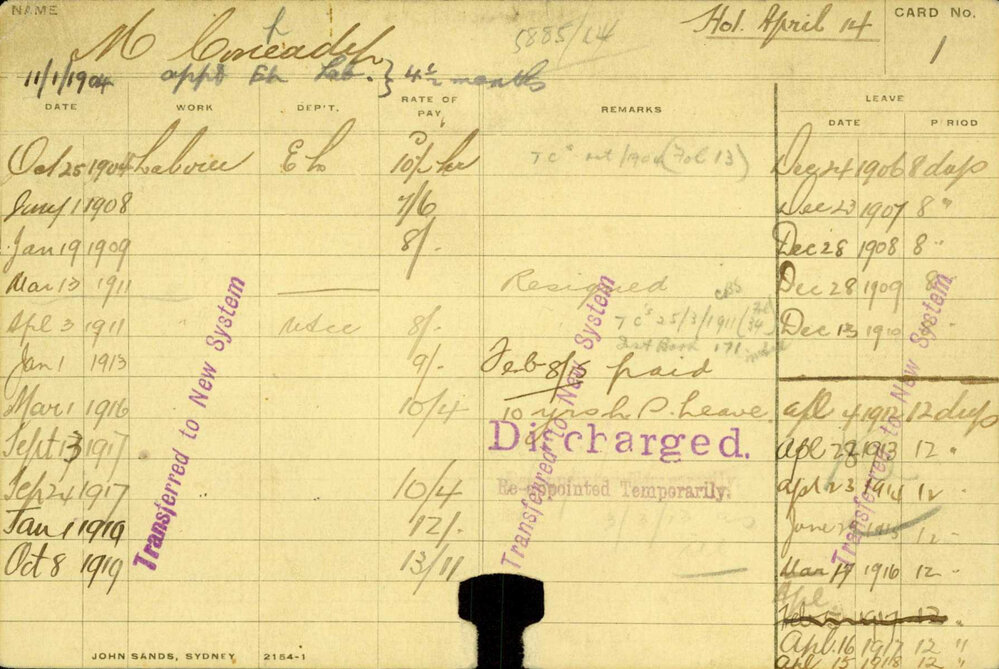 NAME
M
5885/14
Hol. April 14
CARD No.
1
11/1/1904 appt Eh Lab. } 4½ months
DATE WORK DEP'T. RATE OF PAY REMARKS LEAVE
DATE PERIOD
Oct 25 1904 Labour Eh Dec 24 1906 8 days
1 1908 7/6 Dec 23 1907 8 "
Jan 19 1909 8/- Dec 28 1908 8 "
Mar 13 1911 Resigned Dec 28 1909 8
Apl 3 1911 8/- 25/3/1911 Dec 13 1910
171
Jan 1 1913 9/- Feb 8/15 paid
Mar 1 1916 10/4 10 yrs h P. Leave apl 4 1912 12 days
Sept 13 1917 Discharged. Apl 1913 12 "
Sep 24 1917 10/4 Re-appointed Temporarily. apl 23 1914 12 "
Jan 1 1919 12/- June 1915 12 "
Oct 8 1919 13/11 Mar 17 1916 12 "
Apl
Apl. 16 1917 12 "
apl 15 1918 12 "
Transferred to New System
Transferred to New System
Transferred to New System
JOHN SANDS, SYDNEY 2154-1